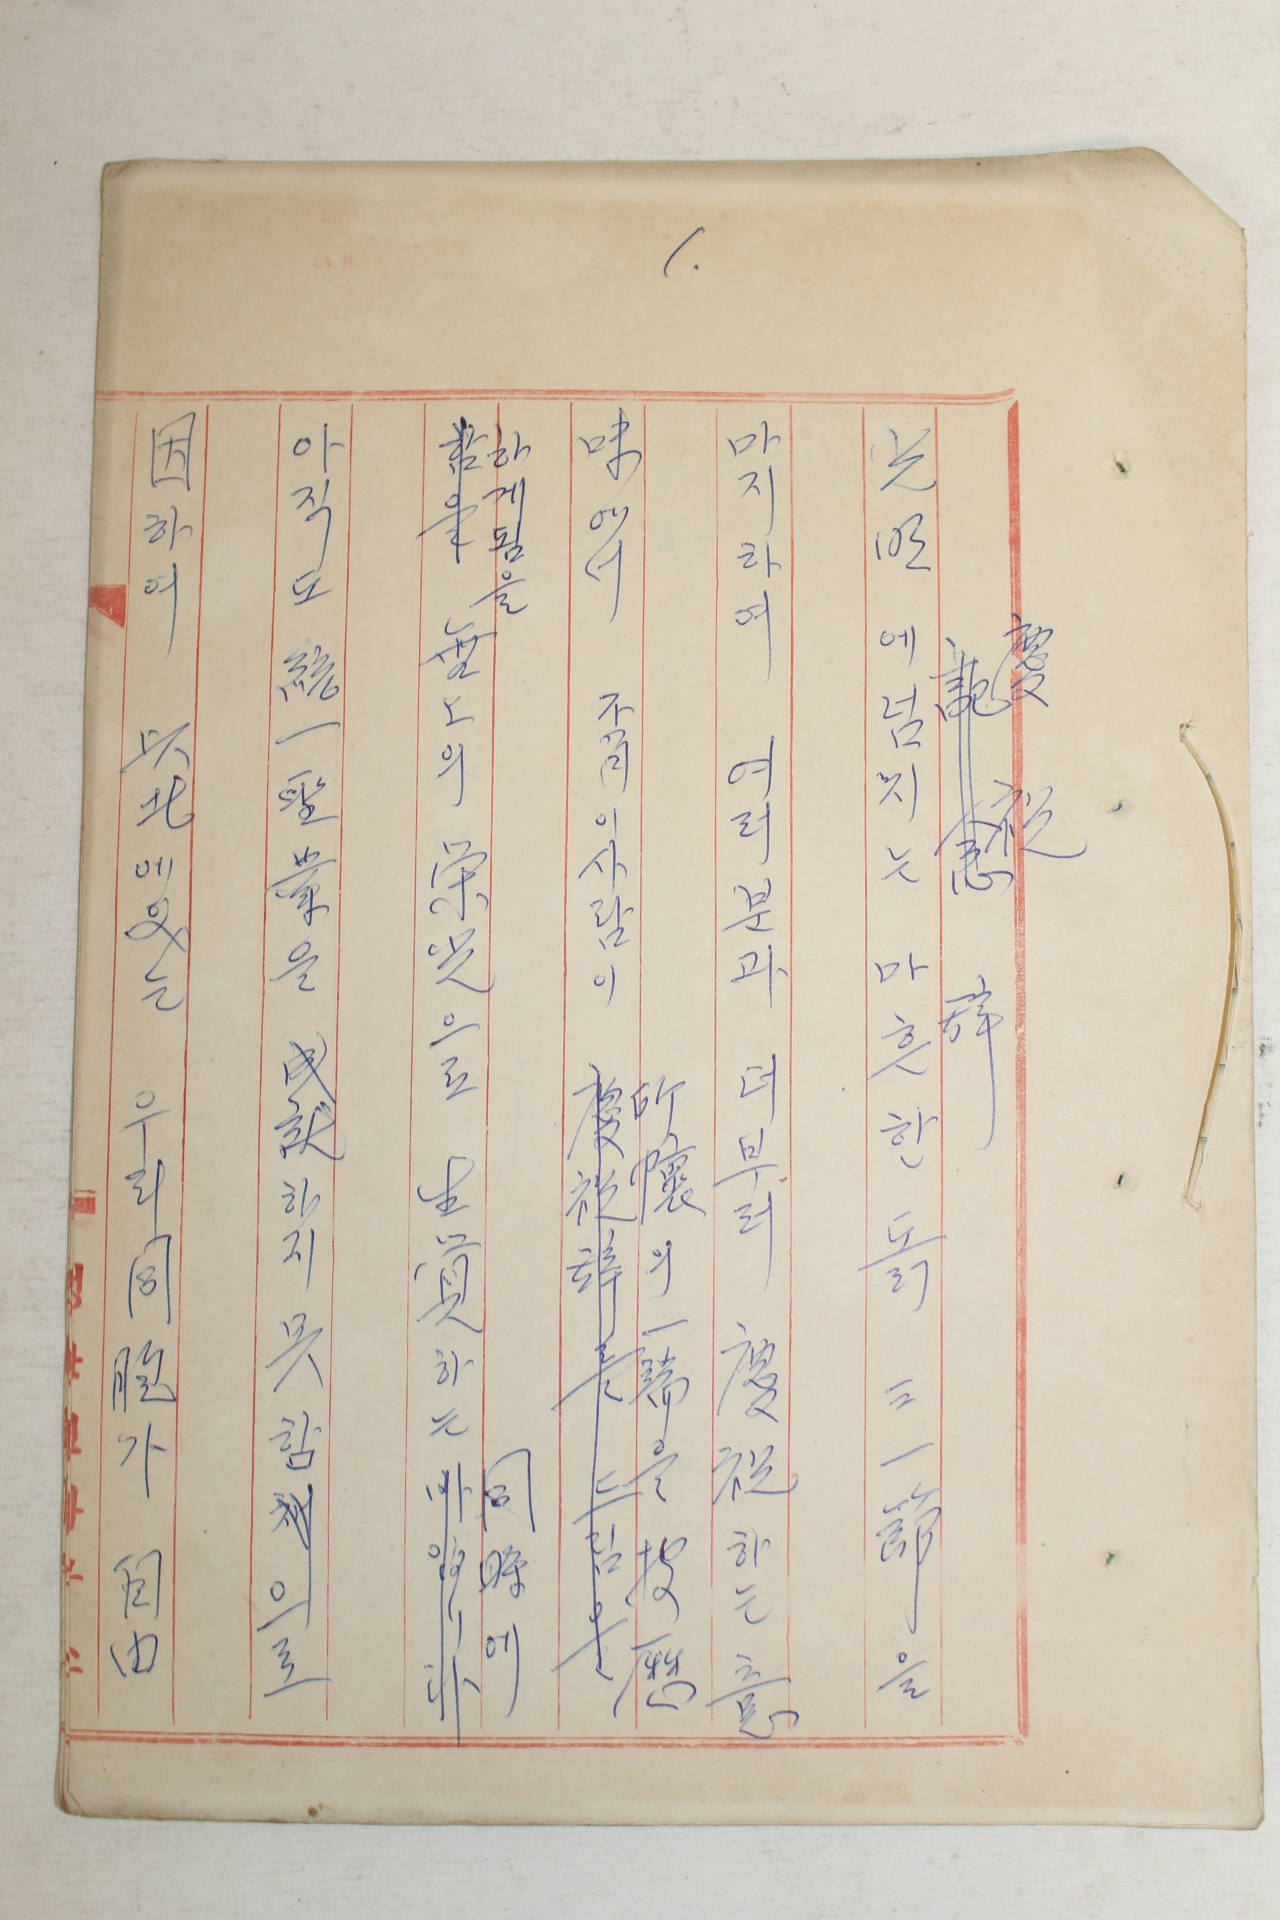 1.
慶祝
記念 辞
光明에넘치는 마흔한돐 三一節을
마지하여 여러분과 더부러 慶祝하는意
味에서 不肖이사람이 慶祝辞를 드림을
所懷의一端을 披瀝
하게됨을
無上의 榮光으로 生覚하는
同時에
아직도 統一聖業을 成就하지 못함으로
因하여 以北에있는 우리同胞가 自由